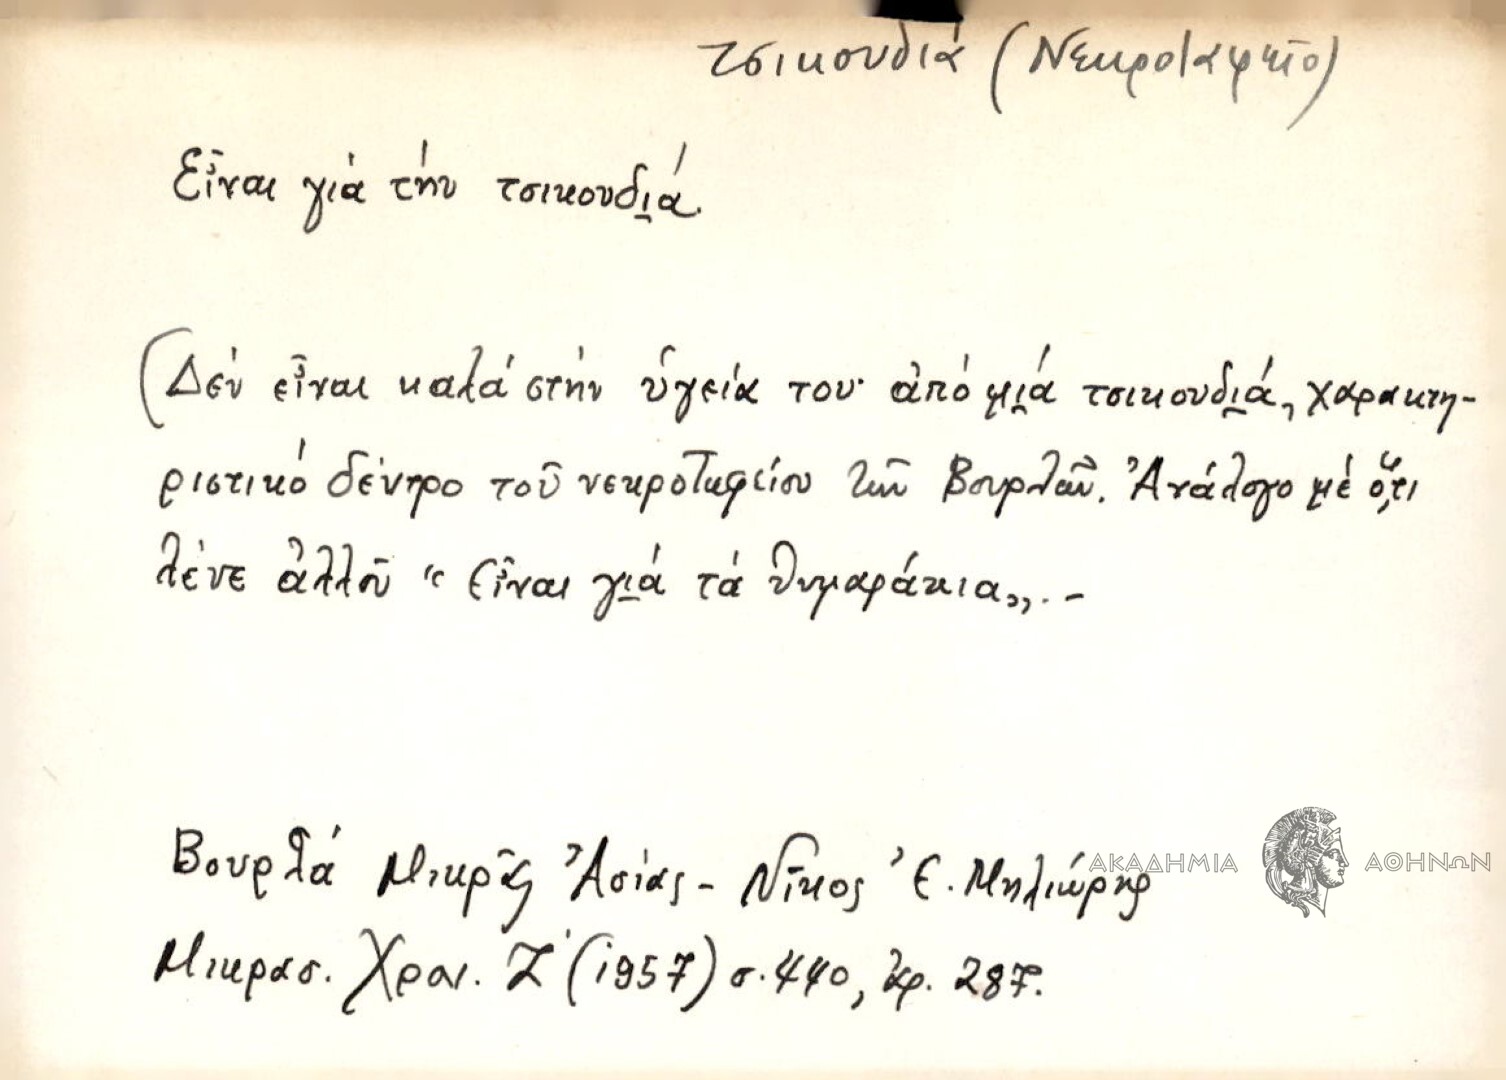 τσικουδιά (Νεκροταφεῖο)
Εἶναι γιὰ τὴν τσικουδιά.
(Δὲν εἶναι καλὰ στὴν ὑγεία του· ἀπὸ μιὰ τσικουδιά, χαρακτη-
ριστικὸ δέντρο τοῦ νεκροταφείου τῶν Βουρλῶν. Ἀνάλογο μὲ ὅ,τι
λένε ἀλλοῦ "Εἶναι γιὰ τὰ θυμαράκια,,. -
Βουρλὰ Μικρᾶς Ἀσίας - Νῖκος Ἐ. Μηλιώρης
Μικρασ. Χρον. Ζ' (1957) σ. 440, ἀρ. 287.
ΑΚΑΔΗΜΙΑ ΑΘΗΝΩΝ